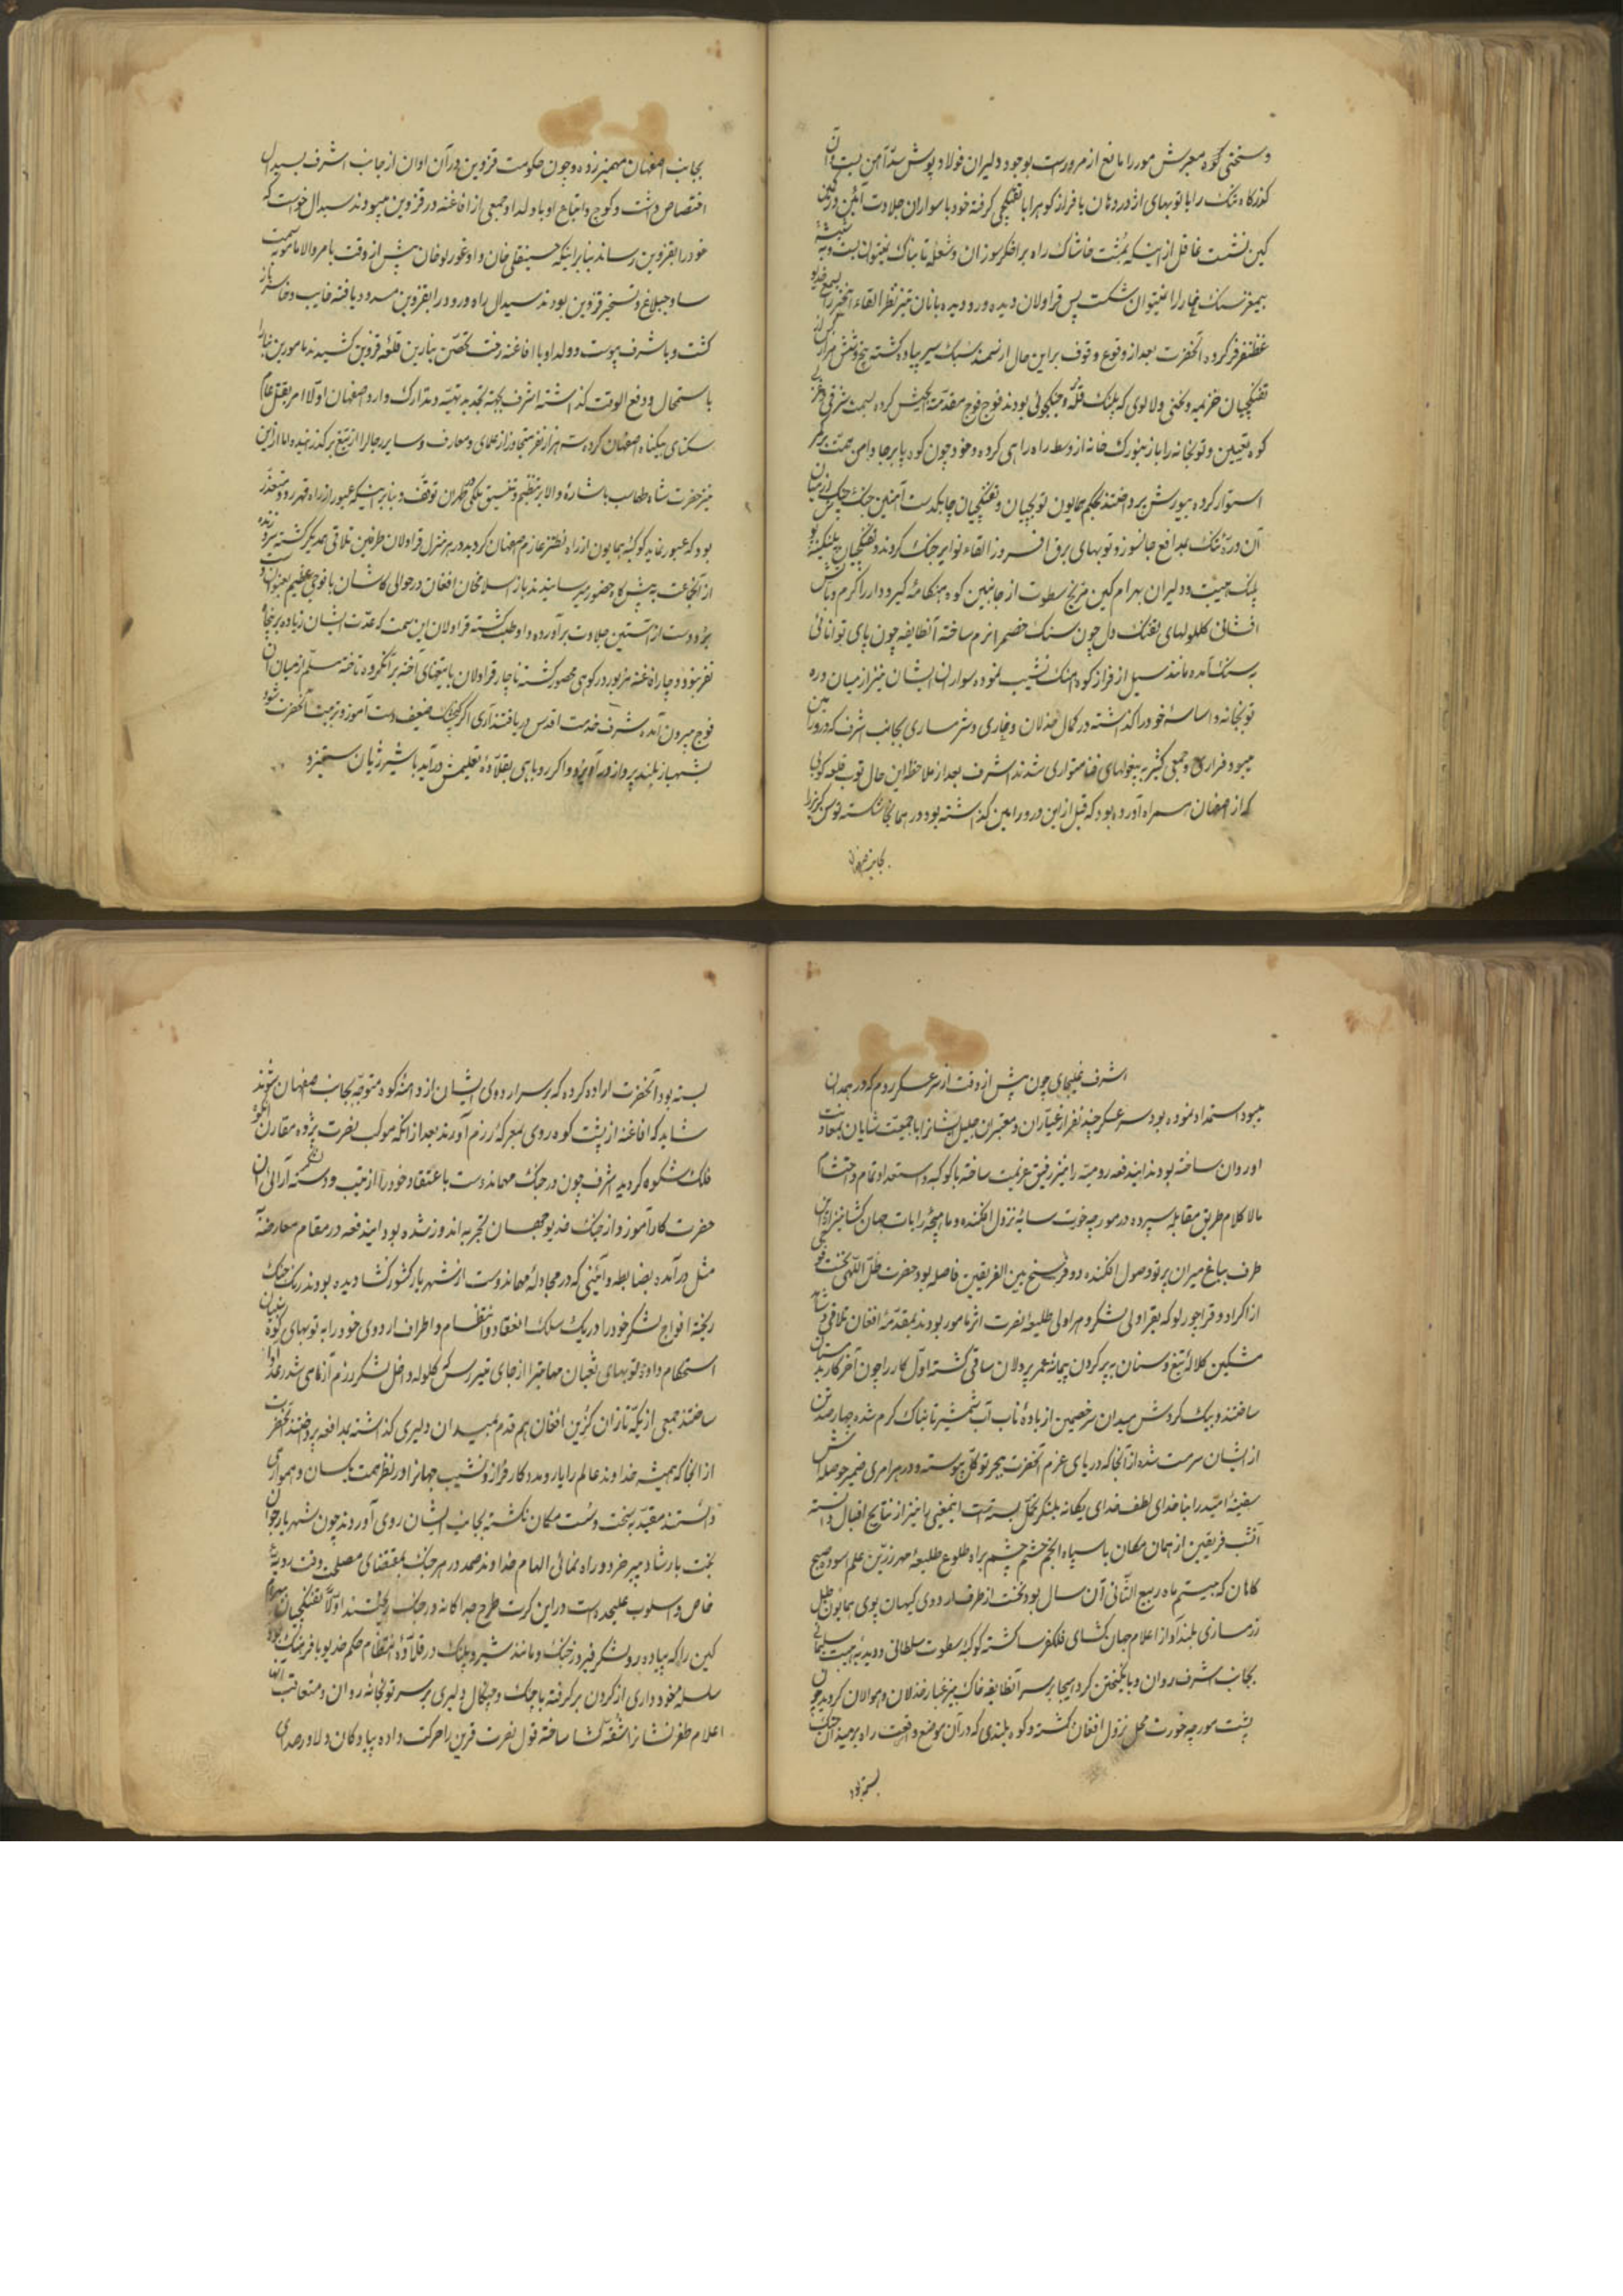 وسختی کوه معبرش مور را مانع از مرورست بوجود دلیران فولاد پوش سدّ آهن بست و آن
کذرکاه تنک را با توبهای اژدر دهان با فراز کوهرا با تفنکچی کرفته خود با سواران جلادت آئین در کمین
کین نشست غافل از اینکه بمُشت خاشاک راه بر اخکر سوزان و شعلهٔ تابناک نمیتوان بست و به شیشهٔ
بیمغز سنک خارا را نمیتوان شکست پس قراولان دیده ور و دیده بانان تیز نظر القاء آنخبر را بسمع خدیو
غظنفر فر کرده آنحضرت بعد از وقوع و قوف بر این حال از سمند سبک سیر پیاده کشته پنج وشش هزار
تفنکچیان خزیمه و لختی و لالوی که پلنک قلّه و جنکجوئی بودند فوج فوج مقدّمة الجیش کرده بسمت شرقی و غربی
کوه تعیین و توبخانه را با زنبورک خانه از وسط راه راهی کرده و خود چون کوه پا برجا دامن همت بر کمر
استوار کرده بیورش پرداختند بحکم همایون توبچیان و تفنکچیان چابکدست آهنین جنک در میان
آن درهٔ تنک بمدافع جانسوز و توبهای برق افروز القاء نوایر جنک کردند و تفنکچیان پلنکینه
پلنک هیبت و دلیران بهرام کین مریخ سطوت از جانبین کوه هنکامهٔ کیر و دار را کرم و بآتش
افشانی کللولهای تفنک دل چون سنک خصم را نرم ساخته آنطایفه چون پای توانائی
بسنک آمده مانند سیل از فراز کوه آهنک نشیب نموده سواران ایشان نیز از میان دره
توبخانه و اساسهٔ خود را کذاشته در کمال خذلان و خاری و شرمساری بجانب اشرف که در ورامین
میبود فراری و جمعی کثیر به بیغولهای فنا متواری شدند اشرف بعد از ملاحظه این حال توب قلعه کوبی
که از اصفهان همراه آورده بود که قبل از این در ورامین کذاشته بود در همانجا شکسته توسن کریز را
بجانب اصفهان
بجانب اصفهان مهمیز زده و چون حکومت قزوین در آن اوان از جانب اشرف بسیدال
اختصاص داشت و کوچ و اتباع او با ولد او جمعی از افاغنه در قزوین میبودند سیدال خواست که
خود را بقزوین رساند بنابر اینکه حسینقلی خان و اوغورلو خان پیش از وقت بامر والا مأمور بسمت
ساوجبلاغ و تسخیر قزوین بودند سیدال راه ورود را بقزوین مسدود یافته خایب و خاسر باز
کشت و باشرف پیوست و ولد او با افاغنه رخت تحصّن بنارین قلعهٔ قزوین کشیدند مأمورین نیز
باستحال و دفع الوقت کذاشته اشرف بجهته تجدید تهیّه و تدارک وارد اصفهان اولاً امر بقتل عام
سکنای بیکناه اصفهان کرده سه هزار نفر متجاوز از علمای و معارف و سایر رجال را از تیغ برکذرانیده اما از این
نیز حضرت شاه طهماسب باشارهٔ والا بر تنظیم و تنسیق ملکی در طهران توقّف و بنابر اینکه عبور از راه قهرود متعذّر
بود که عبور نماید کوکبهٔ همایون از راه نطنز عازم اصفهان کردید در هر منزل قراولان طرفین تلاقی همدیکر کشته سر و زنده
از آنجماعت به پیشکاه حضور میرسانیدند باز اسلام خان افغان در حوالی کاشان با فوجی عظیم بعنوان
بردو دست از آستین جلادت برآورده داوطلب کشته قراولان این سمت که عدّت ایشان زیاده بر پنجاه
نفر نبود دوچار افاغنه مزبور در کوهی محصور کشته ناچار قراولان با تیغهای آخته بر آنکروه تاخته سلّم از میان آن
فوج بیرون آمده شرف خدمت اقدس دریافتند آری اکر کنجشک ضعیف دست آموز تربیت آنحضرت شود
بشهباز بلند پرواز درآویزد و اکر روباهی بقلاّدهٔ تعلیمش درآید با شیر ژیان ستیزد
اشرف غلیجای چون پیش از وقت از سر عسکر روم که در همدان
میبود استمداد نموده بود سر عسکر چند نفر از غیّاران و معتبران جلیل الشّانرا با جمعیت شایان بمعاونت
او روان ساخته بودند ایندفعه رومیّه را نیز رفیق عزیمت ساخته با کوکبه و استعداد تمام و احتشام
مالا کلام طریق مقابله سپرده در مورچه خورت سایهٔ نزول افکنده و ماهیچهٔ رایات جهان کشا نیز از این
طرف بباغ میران پرتو وصول افکنده دو فرسخ بین الفریقین فاصله بود حضرت ظلّ اللّهی نخست فوجی
از اکراد و قراچورلو که بقراولی لشکر و هراولی طلیعهٔ نصرت اثر مأمور بودند بمقدّمهٔ افغان تلاقی و شاهد
مشکین کلالهٔ تیغ و سنان به پر کردن پیمانهٔ عمر پر دلان ساقی کشته اوّل کار را چون آخر کار بدستان
ساختند و بیک کردش میدان سر خصمین از بادهٔ ناب آب شمشیر تابناک کرم شده چهار صد تن
از ایشان سرمست شده از آنجا که دریای عزم آنحضرت ببحر توکّل پیوسته و در هر امری ضمیر حوصله اش
سفینهٔ امیّد را بناخدای لطف خدای یکانه بلنکر تحمّل بسته است اینمعنی را نیز از نتایج اقبال دانسته
آنشب فریقین از همان مکان با سپاه انجم حشم چشم براه طلوع طلیعهٔ مهر زرّین علم آسوده صبح
کاهان که بیستم ماه ربیع الثّانی آن سال بود نخست از طرف اردوی کیهان پوی همایون طبل
رزمسازی بلند آواز اعلام جهان کشای فلکفرسا کشته کوکبهٔ سطوت سلطانی و دبدبهٔ هیبت سلیمانی
بجانب اشرف روان و بانکیختن کرد هیجا بر سر آنطایفه خاک بیز غبار خذلان و هوالان کردید چون
پشت مورچه خورت محلّ نزول افغان کشته و کوه بلندی که در آن موضع واقعست راه بر میدان جنک
بسته بود
بسته بود آنحضرت اراده کرده که بر سر اردوی ایشان از دامنهٔ کوه متوجّه بجانب اصفهان شوند
شاید که افاغنه از پشت کوه روی بمعرکهٔ رزم آورند بعد از آنکه موکب نصرت پژوه مقارن آنکوه
فلک شکوه کردید اشرف چون در جنک مهماندوست باعتقاد خود را از ترتیب و دسته آرائی آن
حضرت کار آموز و از جنک خدیو جهان تجربه اندوز شده بود ایندفعه در مقام معارضه
مثل درآمده بضابطه و آئینی که در مجادلهٔ مهماندوست از شهریار کشور کشا دیده بودند رنک جنک
ریخته افواج لشکر خود را در یک سلک انعقاد و انتظام و اطراف اردوی خود را به توبهای کوه بنیان
استحکام داده توبهای ثعبان مهابترا از جای تیر رس کلوله داخل لشکر رزم آزمای شدر رعد آوا
ساختند جمعی از یکّه تازان کزین افغان هم قدم بمیدان دلیری کذاشته بمدافعه پرداختند آنحضرت
از آنجا که همیشه خداوند عالم را یار و مددکار و فراز و نشیب جهانرا در نظر همت یکسان و همواری
دانستند مقیّد به سخت و سُست مکان نکشته بجانب ایشان روی آوردند چون شهریار جوان
بخت بارشاد پیر خرد و راه نمائی الهام خداوند صمد در هر جنک بمقتضای مصلحت وقت رویّهٔ
خاص و اسلوب علیحده است در این کرت طرح جداکانه در جنک ریختند اوّلاً تفنکچیان بهرام
کین را که پیاده رو لشکر فیروز جنک و مانند شیر و پلنک در قلاّدهٔ انتظام حکم خدیو با فرهنک بود
سلسلهٔ خود داری از کردن بر کرفته با چنک و چنکال دلیری بر سر توبخانه روان و متعاقب آنها
اعلام ظفر نشانرا شقّه کشا ساخته قول نصرت قرین را حرکت داده پیادکان دلاور صدای